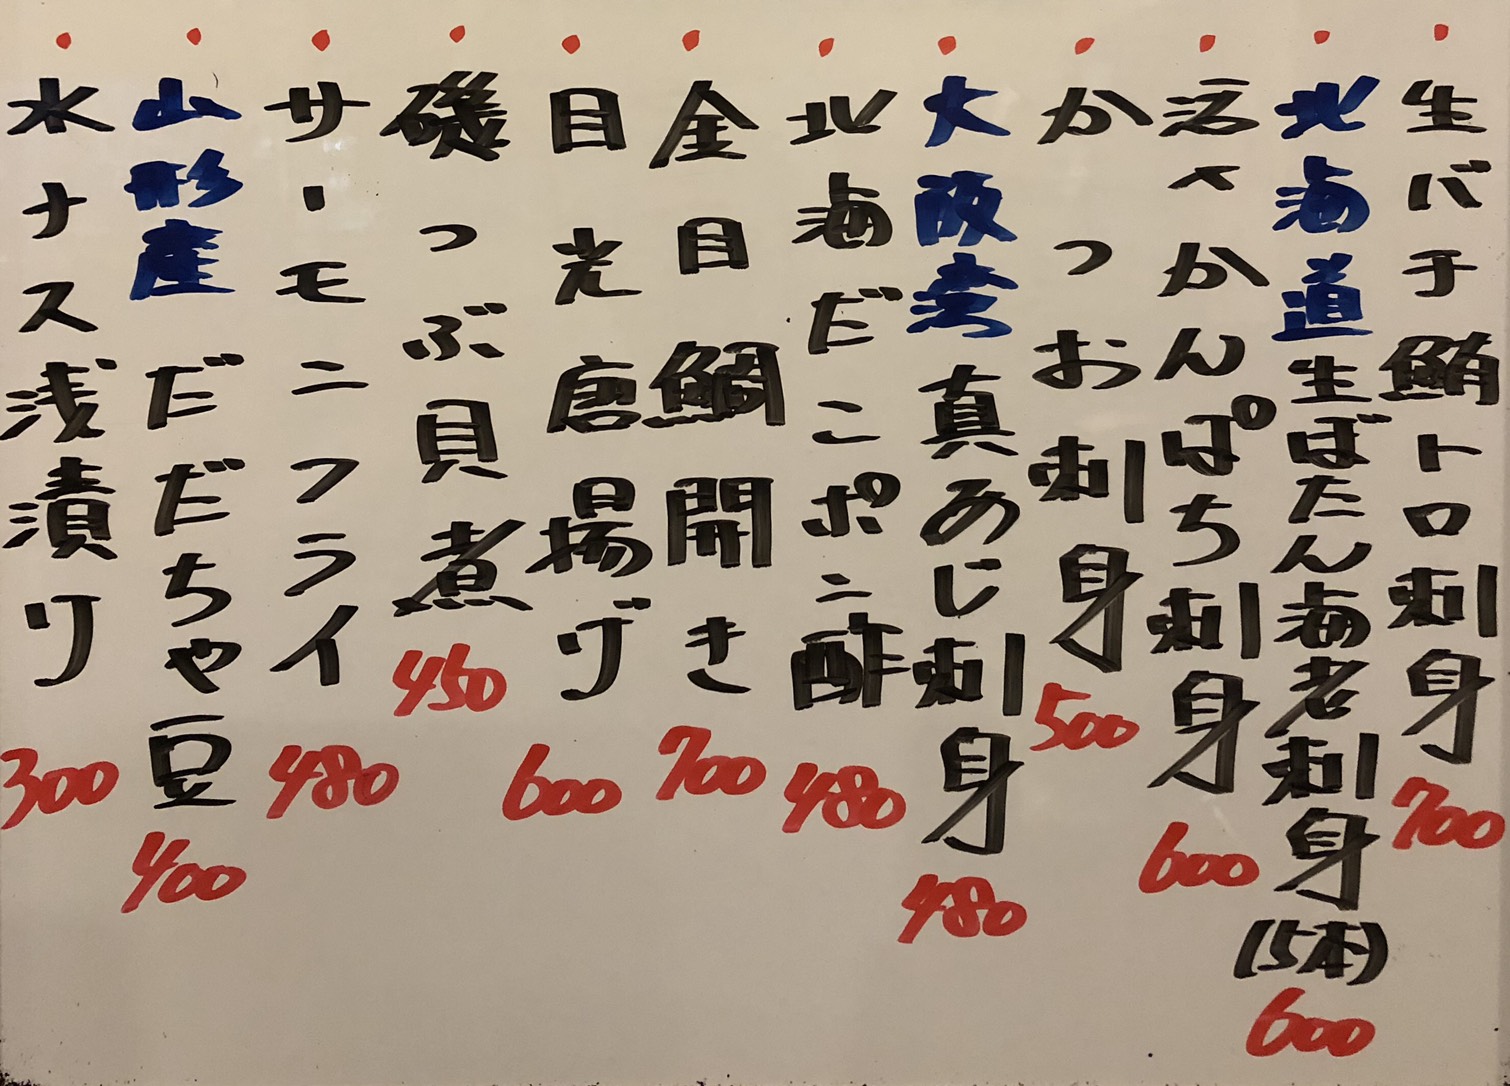 生バチ鮪トロ刺身 700
北海道生ぼたん海老刺身(5本) 600
活〆かんぱち刺身 600
かつお刺身 500
大阪湾真あじ刺身 480
北海だこポン酢 480
金目鯛開き 700
目光唐揚げ 600
磯つぶ貝煮 450
サーモンフライ 480
山形産だだちゃ豆 400
水ナス浅漬り 300